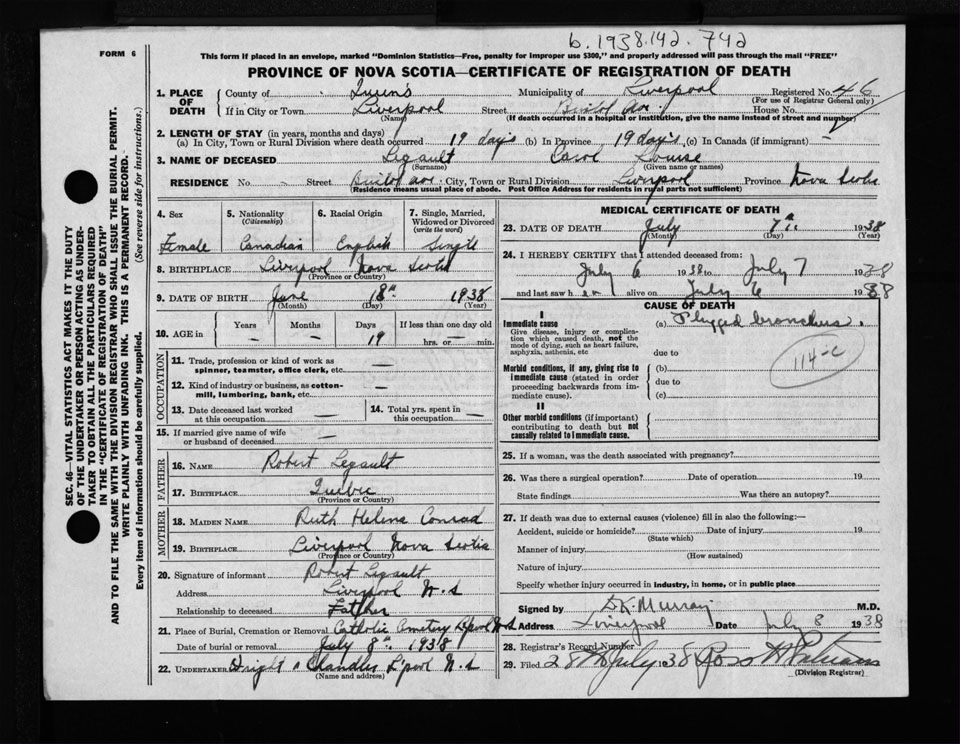 b.1938.142.742
FORM 6
This form if placed in an envelope, marked "Dominion Statistics—Free, penalty for improper use $300," and properly addressed will pass through the mail "FREE"
PROVINCE OF NOVA SCOTIA—CERTIFICATE OF REGISTRATION OF DEATH
1. PLACE OF DEATH County of Queens Municipality of Liverpool Registered No. 46
(For use of Registrar General only)
If in City or Town Liverpool Street Bristol Ave. House No.
(Name) (If death occurred in a hospital or institution, give the name instead of street and number)
2. LENGTH OF STAY (in years, months and days)
(a) In City, Town or Rural Division where death occurred 19 days (b) In Province 19 days (c) In Canada (if immigrant) —
3. NAME OF DECEASED Legault Carol Louise
(Surname) (Given name or names)
RESIDENCE No - Street Bristol Ave. City, Town or Rural Division Liverpool Province Nova Scotia
(Residence means usual place of abode. Post Office Address for residents in rural parts not sufficient)
4. Sex 5. Nationality (Citizenship) 6. Racial Origin 7. Single, Married, Widowed or Divorced (write the word)
Female Canadian English Single
8. BIRTHPLACE Liverpool Nova Scotia
(Province or Country)
9. DATE OF BIRTH June 18th 1938
(Month) (Day) (Year)
10. AGE in Years Months Days If less than one day old
— — 19 hrs. — min.
OCCUPATION
11. Trade, profession or kind of work as spinner, teamster, office clerk, etc. —
12. Kind of industry or business, as cotton-mill, lumbering, bank, etc. —
13. Date deceased last worked at this occupation — 14. Total yrs. spent in this occupation —
15. If married give name of wife or husband of deceased —
FATHER
16. NAME Robert Legault
17. BIRTHPLACE Quebec
(Province or Country)
MOTHER
18. MAIDEN NAME Ruth Helena Conrad
19. BIRTHPLACE Liverpool Nova Scotia
(Province or Country)
20. Signature of informant Robert Legault
Address Liverpool N.S
Relationship to deceased Father
21. Place of Burial, Cremation or Removal Catholic Cemetery L'pool N.S
Date of burial or removal July 8th 1938
22. UNDERTAKER Wright & Chandler L'pool N.S
(Name and address)
MEDICAL CERTIFICATE OF DEATH
23. DATE OF DEATH July 7th 1938
(Month) (Day) (Year)
24. I HEREBY CERTIFY that I attended deceased from:
July 6 1938 to July 7 1938
and last saw her alive on July 6 1938
CAUSE OF DEATH
I
Immediate cause
Give disease, injury or complication which caused death, not the mode of dying, such as heart failure, asphyxia, asthenia, etc
(a) Plugged bronchus.
due to
114-c
Morbid conditions, if any, giving rise to immediate cause (stated in order proceeding backwards from immediate cause).
(b)
due to
(c)
II
Other morbid conditions (if important) contributing to death but not causally related to immediate cause.
25. If a woman, was the death associated with pregnancy?
26. Was there a surgical operation? Date of operation 19
State findings Was there an autopsy?
27. If death was due to external causes (violence) fill in also the following:—
Accident, suicide or homicide? Date of injury 19
(State which)
Manner of injury
(How sustained)
Nature of injury
Specify whether injury occurred in industry, in home, or in public place
Signed by D.K. Murray M.D.
Address Liverpool July 8 1938
28. Registrar's Record Number
29. Filed 28th July 38 Ross
(Division Registrar)
SEC. 46—VITAL STATISTICS ACT MAKES IT THE DUTY
OF THE UNDERTAKER OR PERSON ACTING AS UNDER-
TAKER TO OBTAIN ALL THE PARTICULARS REQUIRED
IN THE "CERTIFICATE OF REGISTRATION OF DEATH"
AND TO FILE THE SAME WITH THE DIVISION REGISTRAR WHO SHALL ISSUE THE BURIAL PERMIT.
WRITE PLAINLY WITH UNFADING INK. THIS IS A PERMANENT RECORD.
Every item of information should be carefully supplied. (See reverse side for instructions.)